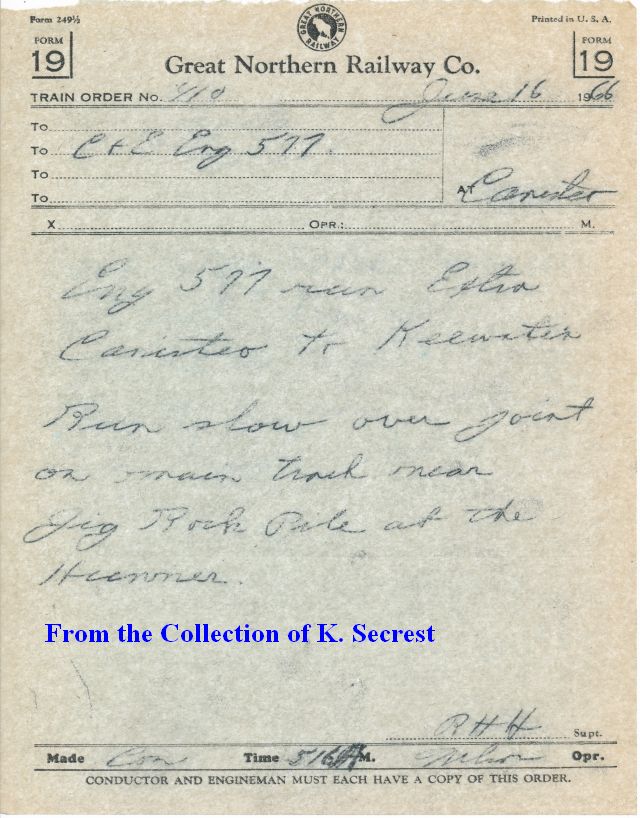 Form 249½
Printed in U. S. A.
GREAT NORTHERN RAILWAY
FORM 19
Great Northern Railway Co.
FORM 19
TRAIN ORDER No. 410 June 16 1966
To
To C & E Eng 577.
To
To
AT Canisteo
X OPR.: M.
Eng 577 run Extra
Canisteo to Keewatin
Run slow over joint
on main track near
Jig Rock Pile at the
From the Collection of K. Secrest
R H H Supt.
Made Com Time 516 A M. Nelson Opr.
CONDUCTOR AND ENGINEMAN MUST EACH HAVE A COPY OF THIS ORDER.